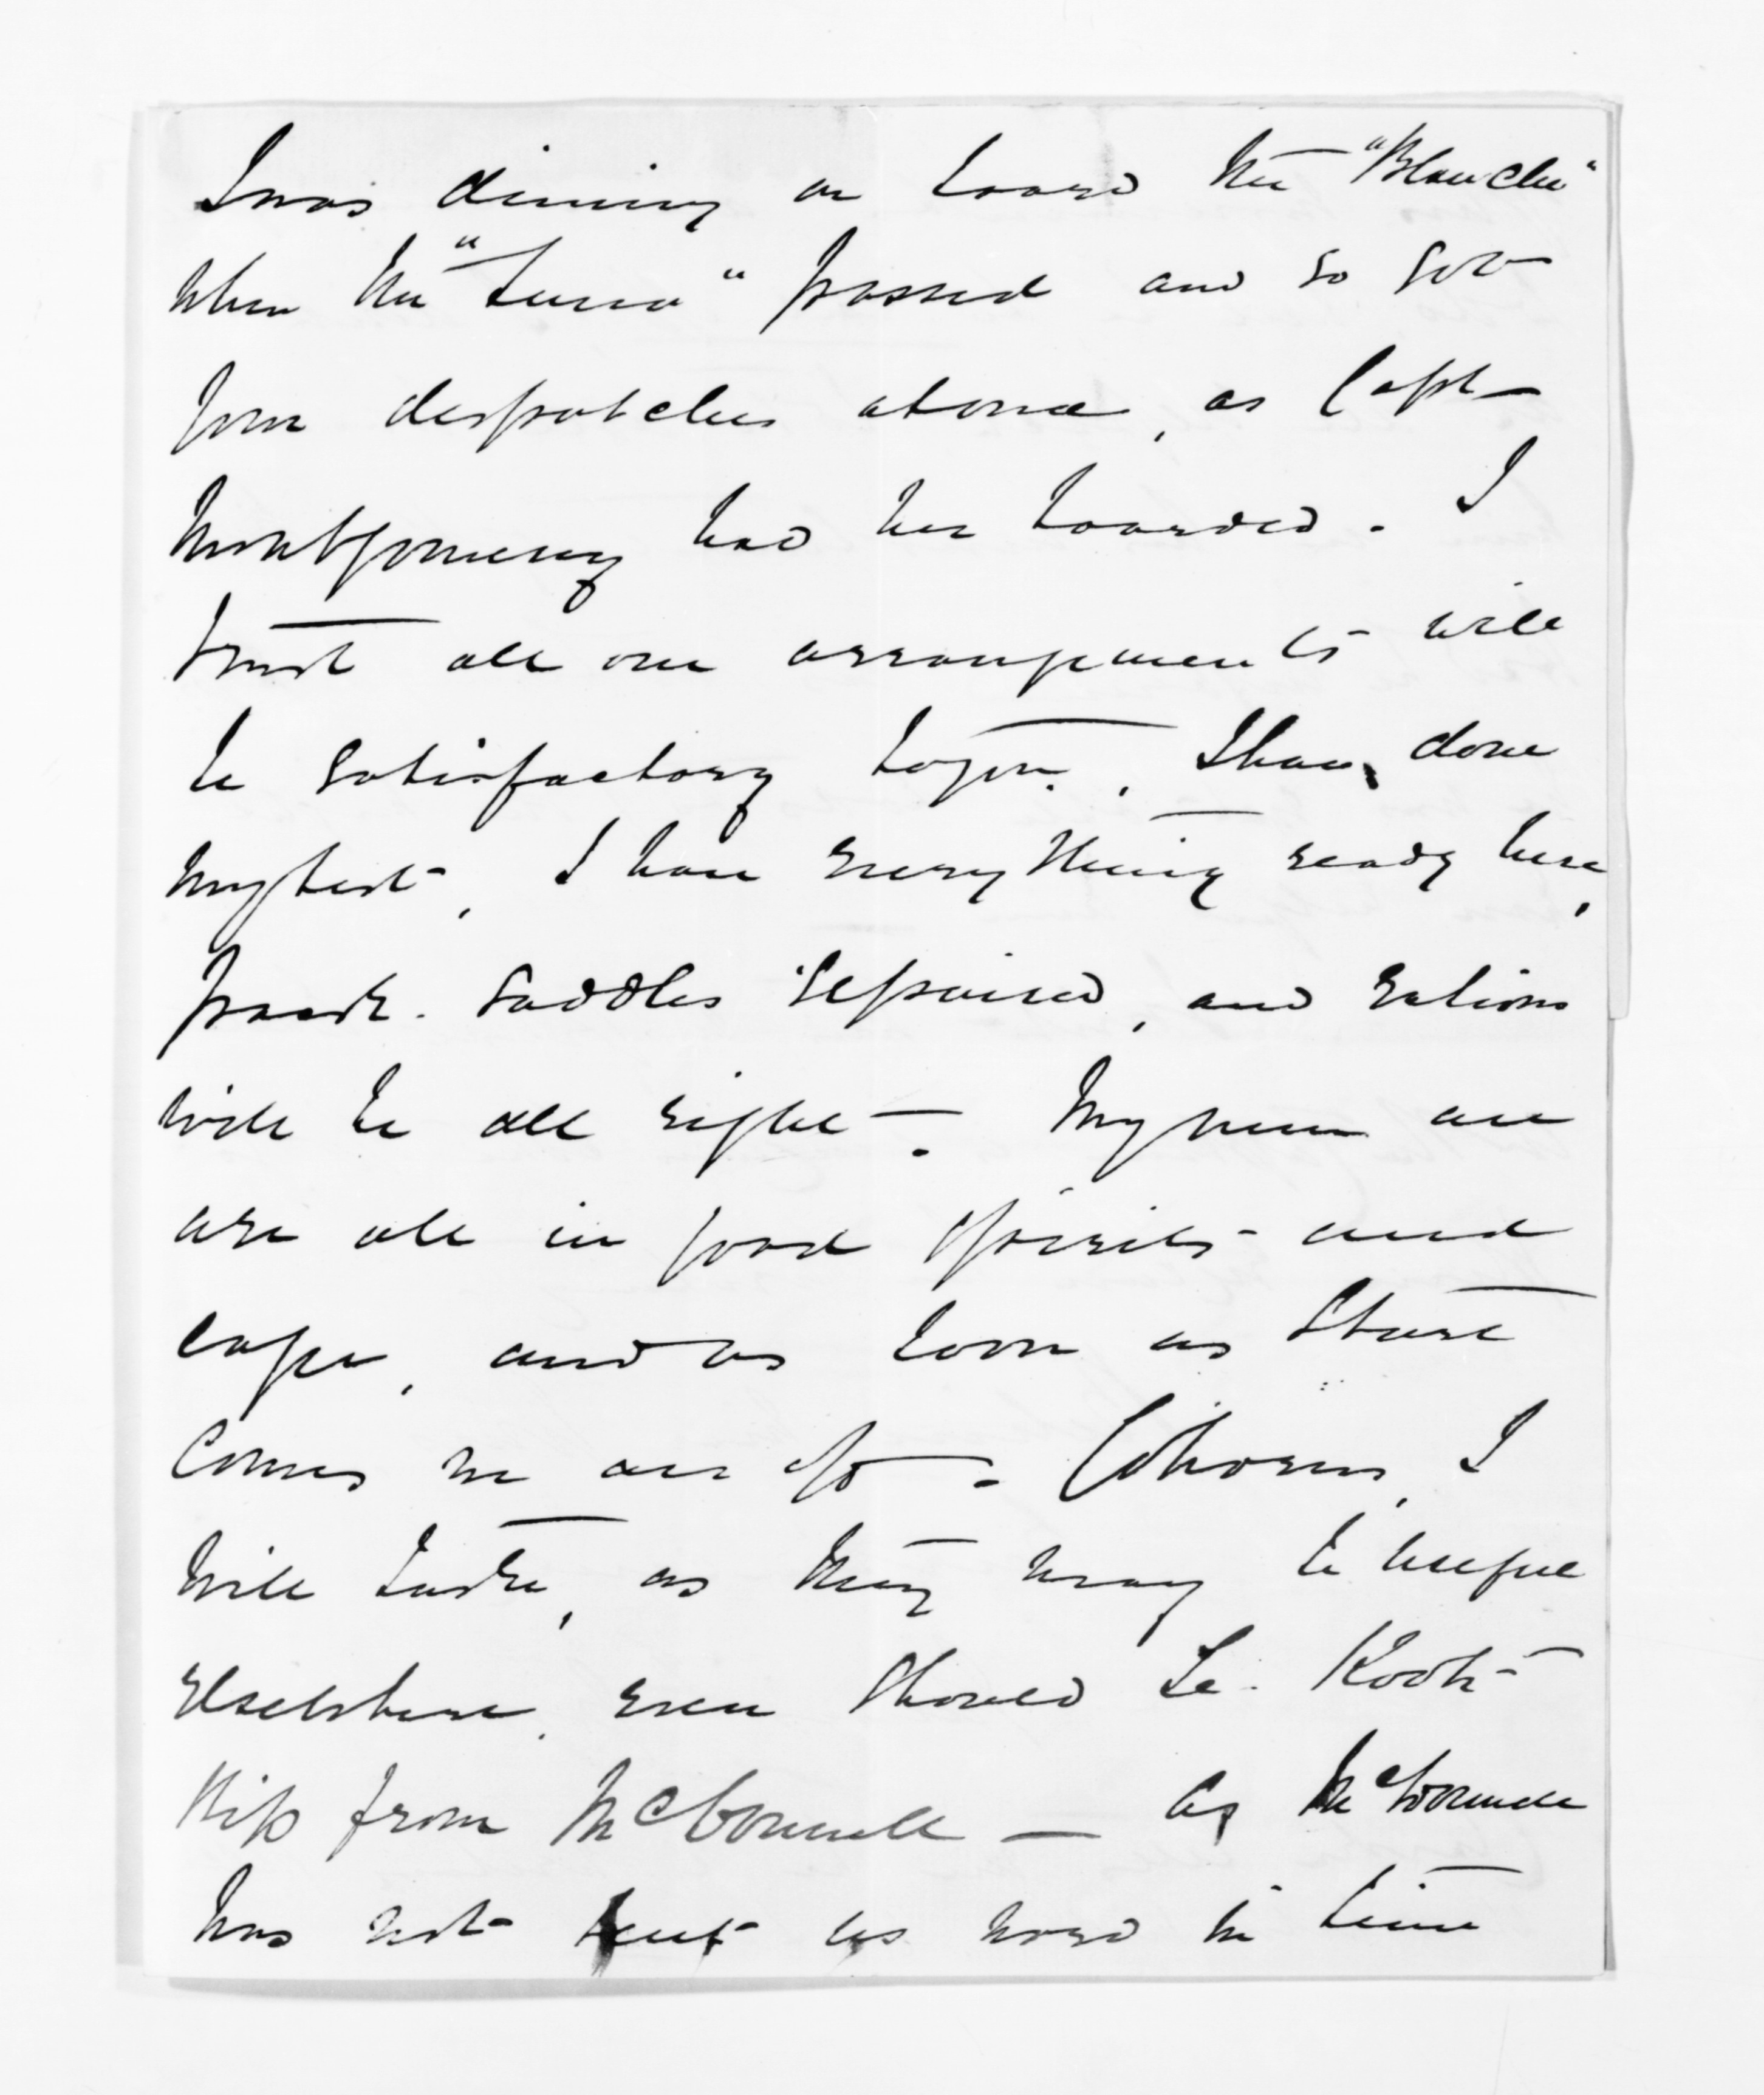 I was dining on board the "Blanche"
when the "Luna" passed and so got
your despatches at once, as Capt
Montgomery had her boarded. I
trust all our arrangements will
be satisfactory to you. I have done
my best, I have everything ready here,
pack. saddles repaired, and rations
will be all right. My men are
are all in good spirits and
eager, and as soon as Sture
comes we are off. Cohorns, I
will take, as they may be useful
elsewhere, even should Te. Kooti
slip from McDonnell — As McDonnell
has not sent us word in time